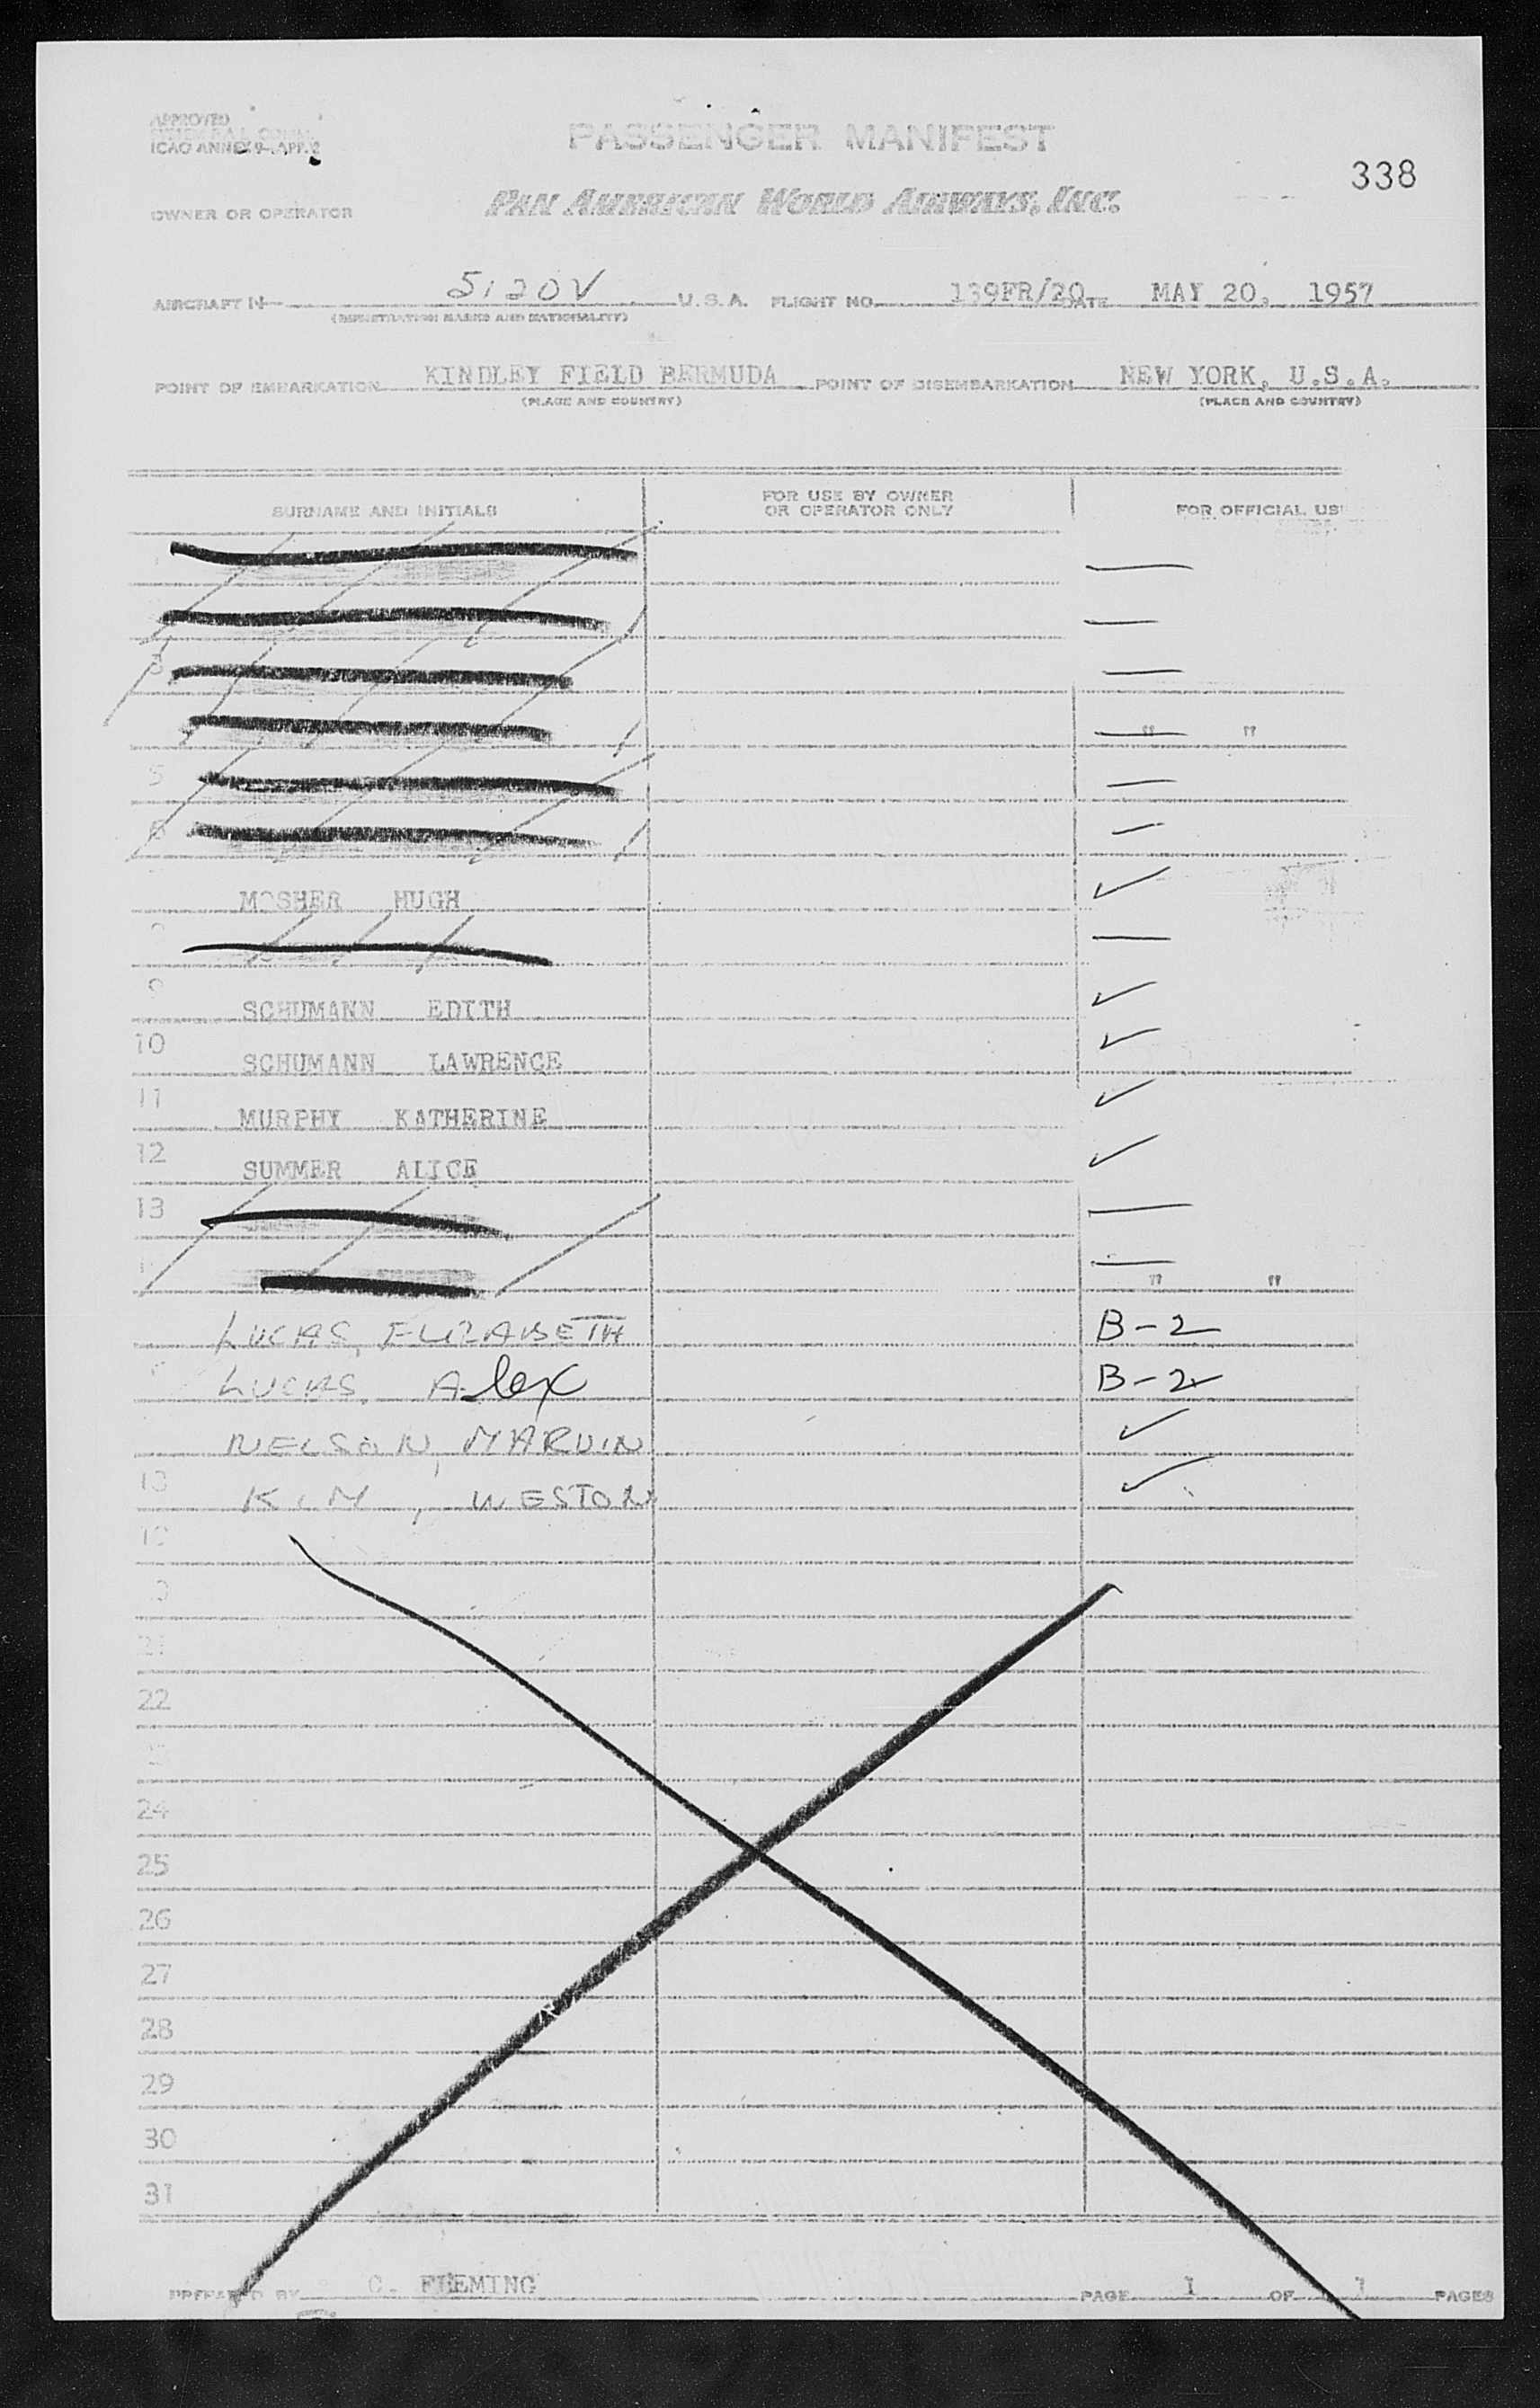 APPROVED
ICAO ANNEX 9-APP. 2
PASSENGER MANIFEST
338
OWNER OR OPERATOR PAN AMERICAN WORLD AIRWAYS, INC.
AIRCRAFT N 5120V U.S.A. FLIGHT NO. 139FR/20 DATE MAY 20, 1957
(REGISTRATION MARKS AND NATIONALITY)
POINT OF EMBARKATION KINDLEY FIELD BERMUDA POINT OF DISEMBARKATION NEW YORK, U.S.A.
(PLACE AND COUNTRY) (PLACE AND COUNTRY)
SURNAME AND INITIALS FOR USE BY OWNER OR OPERATOR ONLY FOR OFFICIAL US
3
" "
5
6
MOSHER HUGH ✓
9 SCHUMANN EDITH ✓
10 SCHUMANN LAWRENCE ✓
11 MURPHY KATHERINE ✓
12 SUMMER ALICE ✓
13
" "
LUCAS, ELIZABETH B-2
LUCAS, Alex B-2
NELSON, MARVIN ✓
18 KIM, WESTON ✓
19
21
22
24
25
26
27
28
29
30
31
PREPARED BY C. FLEMING PAGE 1 OF 1 PAGES